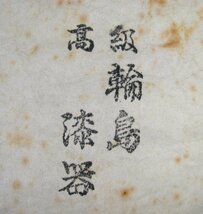 高級
輪島
漆器